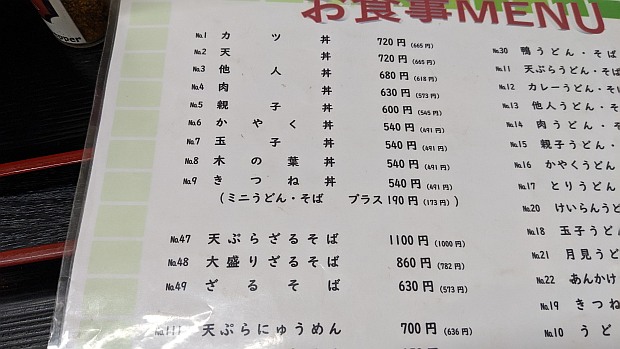 pper
お食事MENU
No.1 カツ丼 720円(665円)
No.2 天丼 720円(665円)
No.3 他人丼 680円(618円)
No.4 肉丼 630円(573円)
No.5 親子丼 600円(545円)
No.6 かやく丼 540円(491円)
No.7 玉子丼 540円(491円)
No.8 木の葉丼 540円(491円)
No.9 きつね丼 540円(491円)
(ミニうどん・そば プラス190円(173円))
No.47 天ぷらざるそば 1100円(1000円)
No.48 大盛りざるそば 860円(782円)
No.49 ざるそば 630円(573円)
No.111 天ぷらにゅうめん 700円(636円)
No.30 鴨うどん・そば
No.11 天ぷらうどん・そ
No.12 カレーうどん・そ
No.13 他人うどん・そ
No.14 肉うどん・そ
No.15 親子うどん・
No.16 かやくうどん
No.17 とりうどん・
No.20 けいらんうど
No.18 玉子うど
No.21 月見うど
No.22 あんかけ
No.19 きつね
No.10 うど